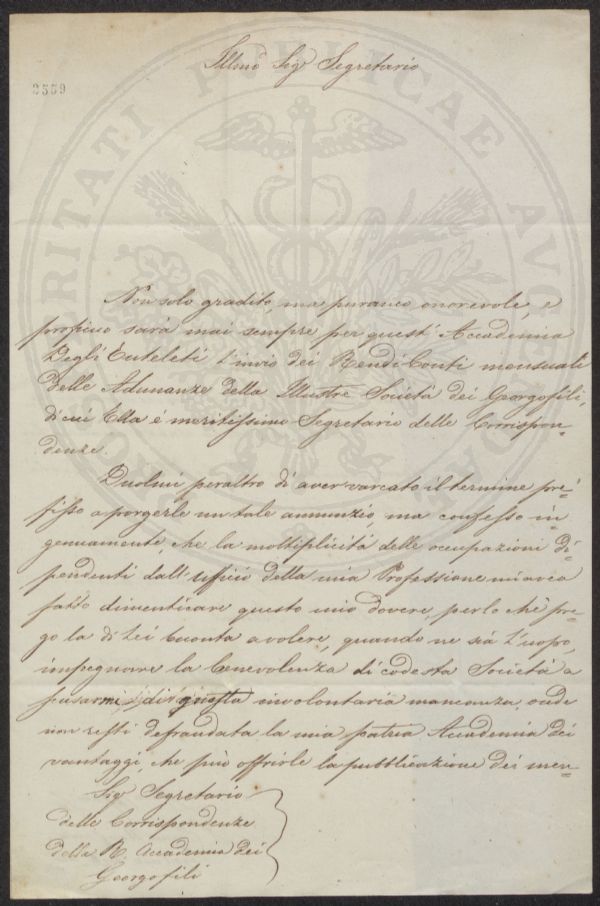 Illmo Sig Segretario
2559
PROSPERITATI PUBLICAE AUGENDAE
Non solo gradito, ma puranco onorevole, e
proficuo sarà mai sempre per quest' Accademia
Degli Euteleti l'invio dei RendiConti mensuali
delle Adunanze della Illustre Società dei Georgofili,
di cui Ella è meritissimo Segretario delle Corrispon-
denze.
Duolmi peraltro di aver varcato il termine pre-
fisso a porgerle un tale annunzio, ma confesso in-
genuamente, che la moltiplicità delle occupazioni di-
pendenti dall' ufficio della mia Professione mi avea
fatto dimenticare questo mio dovere, perlochè pre-
go la di Lei bontà a volere, quando ne sia l'uopo,
impegnare la benevolenza di codesta Società a
scusarmi di questa involontaria mancanza, onde
non resti defraudata la mia patria Accademia dei
vantaggi, che può offrirle la pubblicazione dei men-
Sig Segretario
delle Corrispondenze
della R. Accademia dei
Georgofili